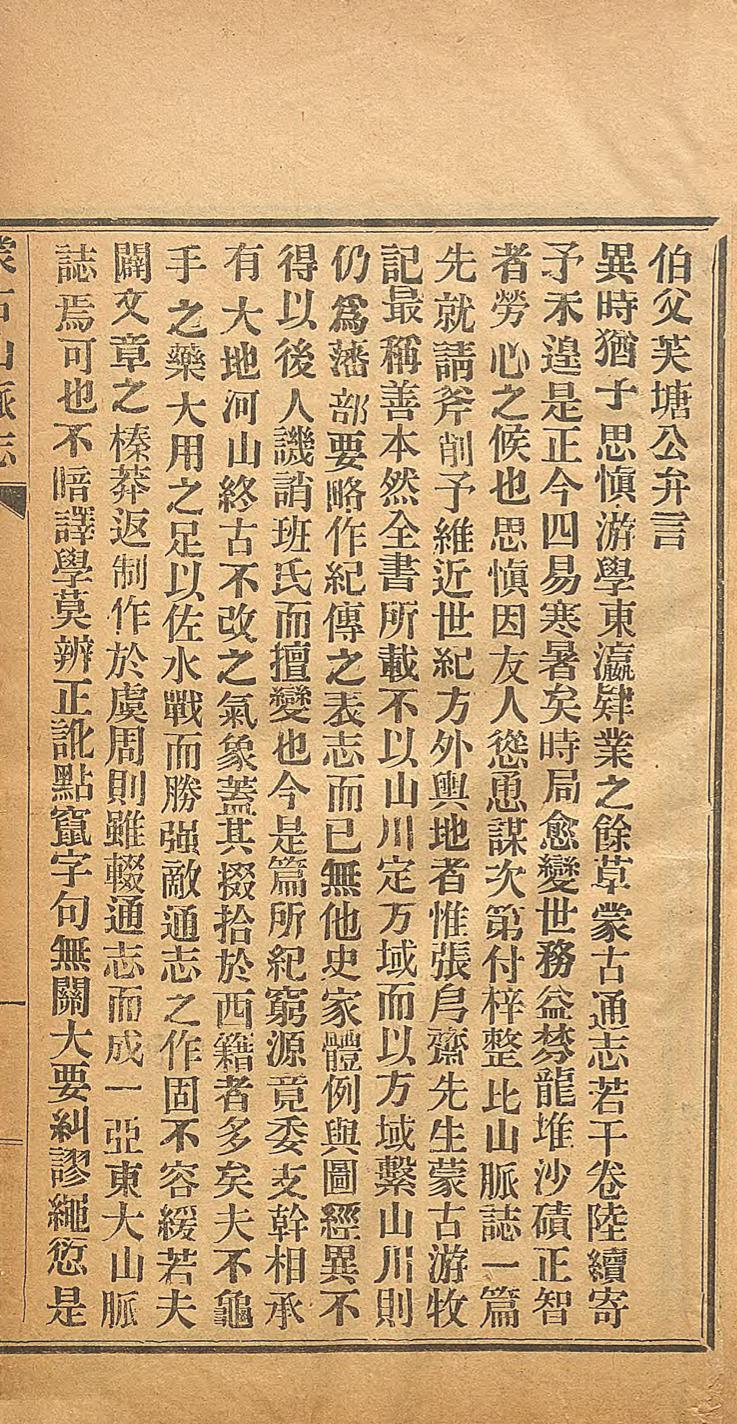 伯父芙塘公弁言
異時猶子思慎游學東瀛肄業之餘草蒙古通志若干卷陸續寄
予未遑是正今四易寒暑矣時局愈變世務益棼龍堆沙磧正智
者勞心之候也思慎因友人慫恿謀次第付梓整比山脈誌一篇
先就請斧削予維近世紀方外輿地者惟張㡯齋先生蒙古游牧
記最稱善本然全書所載不以山川定方域而以方域繫山川則
仍爲藩部要略作紀傳之表志而已無他史家體例與圖經異不
得以後人譏誚班氏而擅變也今是篇所紀窮源竟委支幹相承
有大地河山終古不改之氣象蓋其掇拾於西籍者多矣夫不龜
手之藥大用之足以佐水戰而勝强敵通志之作固不容緩若夫
闢文章之榛莽返制作於虞周則雖輟通志而成一亞東大山脈
誌焉可也不暗譯學莫辨正訛點竄字句無關大要糾謬繩愆是
蒙古山脈志